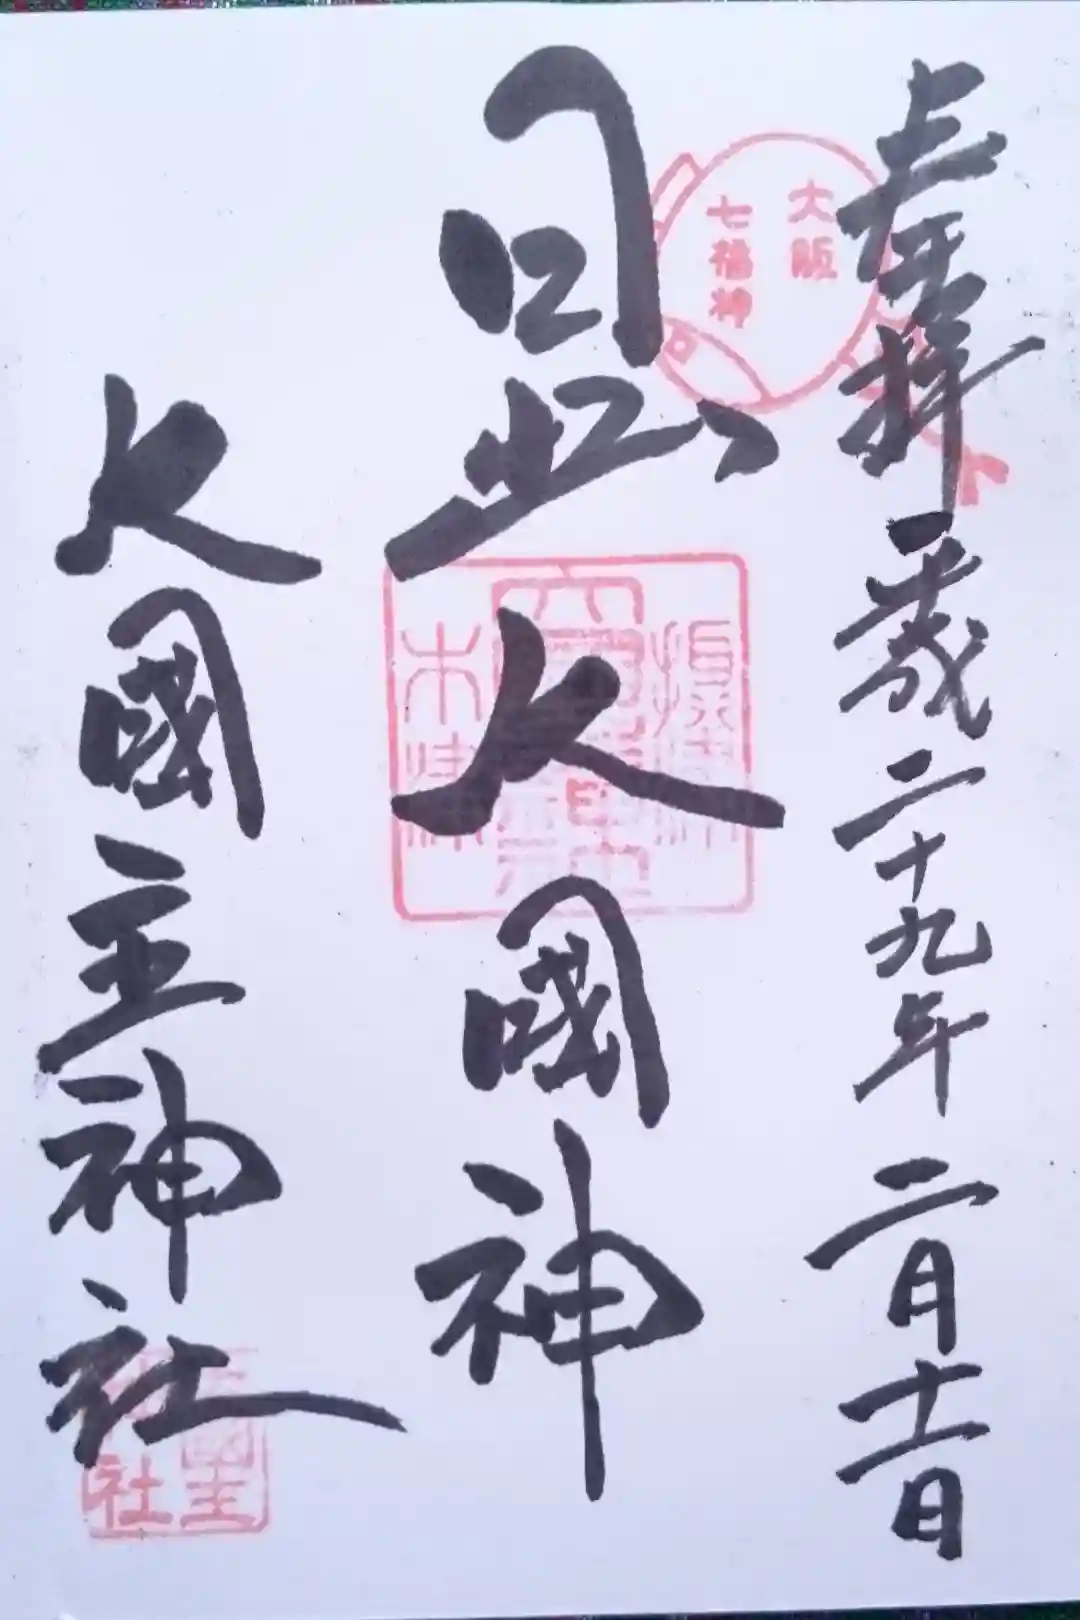 奉拝 平成二十九年二月十一日
大阪
七福神
日出大國神
木津
大國主神社